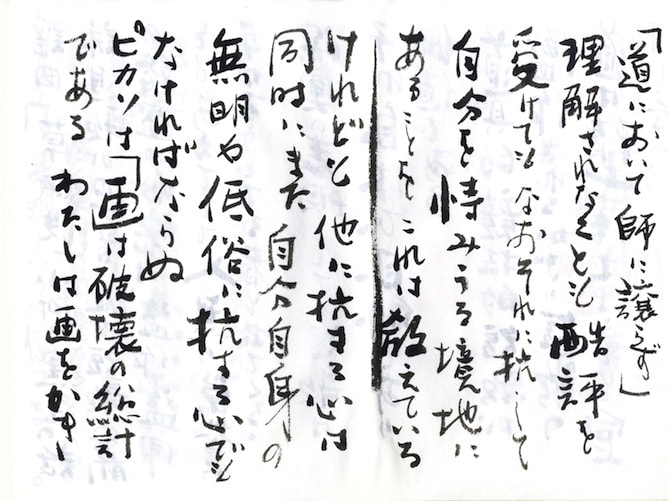 「道において師に譲らず」
理解されなくとも酷評を
受けてもなおそれに抗して
自分を恃みうる境地に
あることをこれは教えている
けれども他に抗する心は
同時にまた自分自身の
無明や低俗に抗する心でも
なければならぬ
ピカソは「画は破壊の総計
である わたしは画をかき